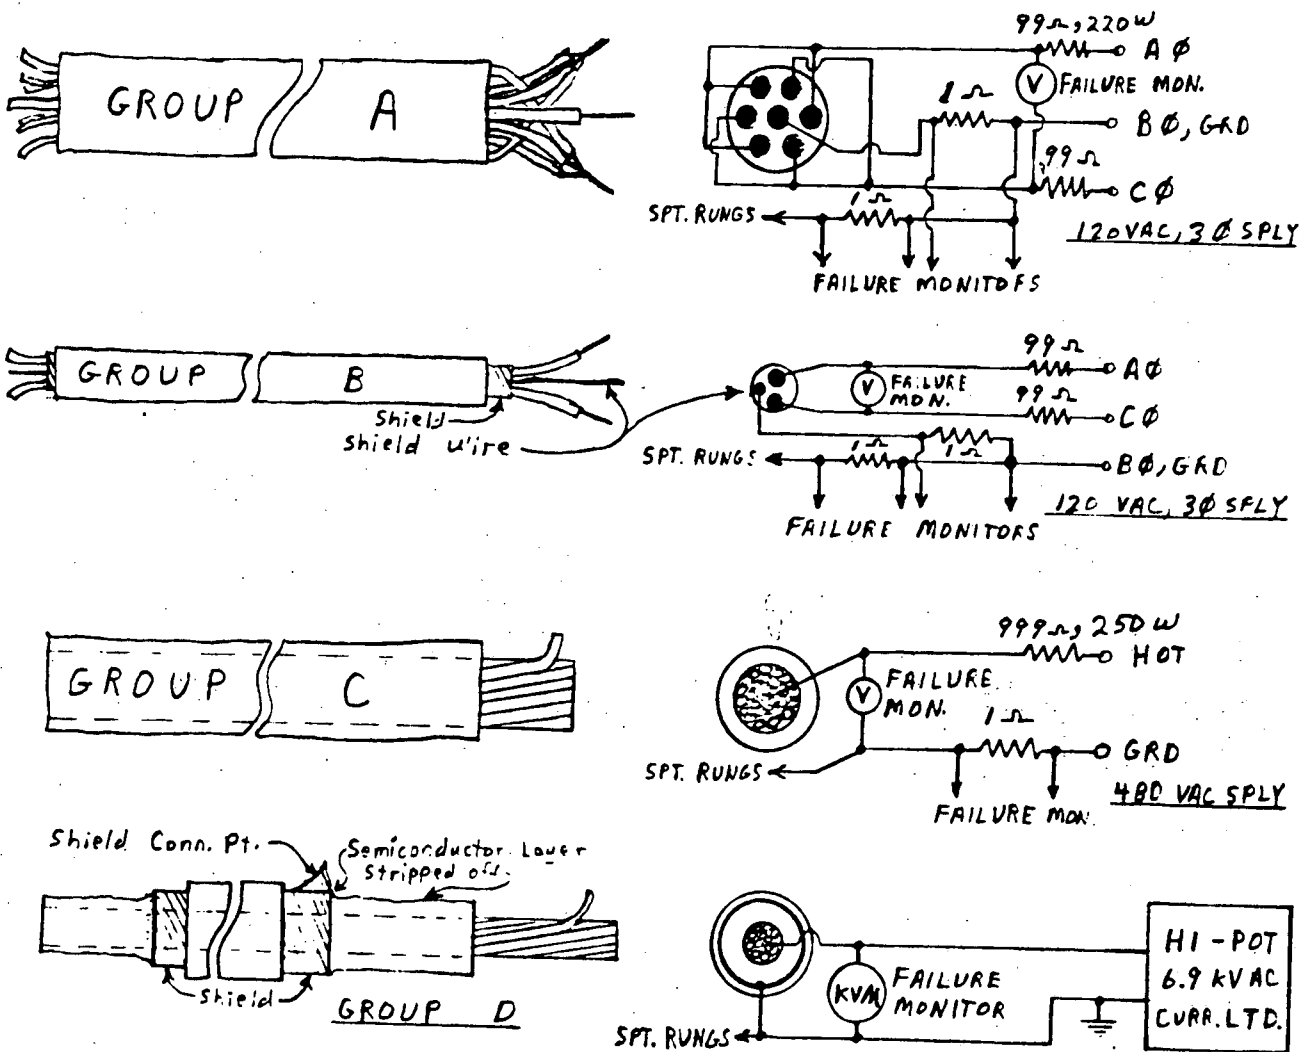 GROUP A
99Ω, 220W
AØ
V FAILURE MON.
1Ω
BØ, GRD
99Ω
CØ
SPT. RUNGS
1Ω
120VAC, 3Ø SPLY
FAILURE MONITOFS
GROUP B
Shield
Shield Wire
99Ω
AØ
V FAILURE MON.
99Ω
CØ
SPT. RUNGS
1Ω
1Ω
BØ, GRD
120 VAC, 3Ø SPLY
FAILURE MONITORS
GROUP C
999Ω, 250W
HOT
V
FAILURE
MON.
1Ω
GRD
SPT. RUNGS
480 VAC SPLY
FAILURE MON.
Shield Conn. Pt.
Semiconductor Layer
Stripped off.
Shield
GROUP D
KVM
FAILURE
MONITOR
SPT. RUNGS
HI-POT
6.9 KVAC
CURR. LTD.